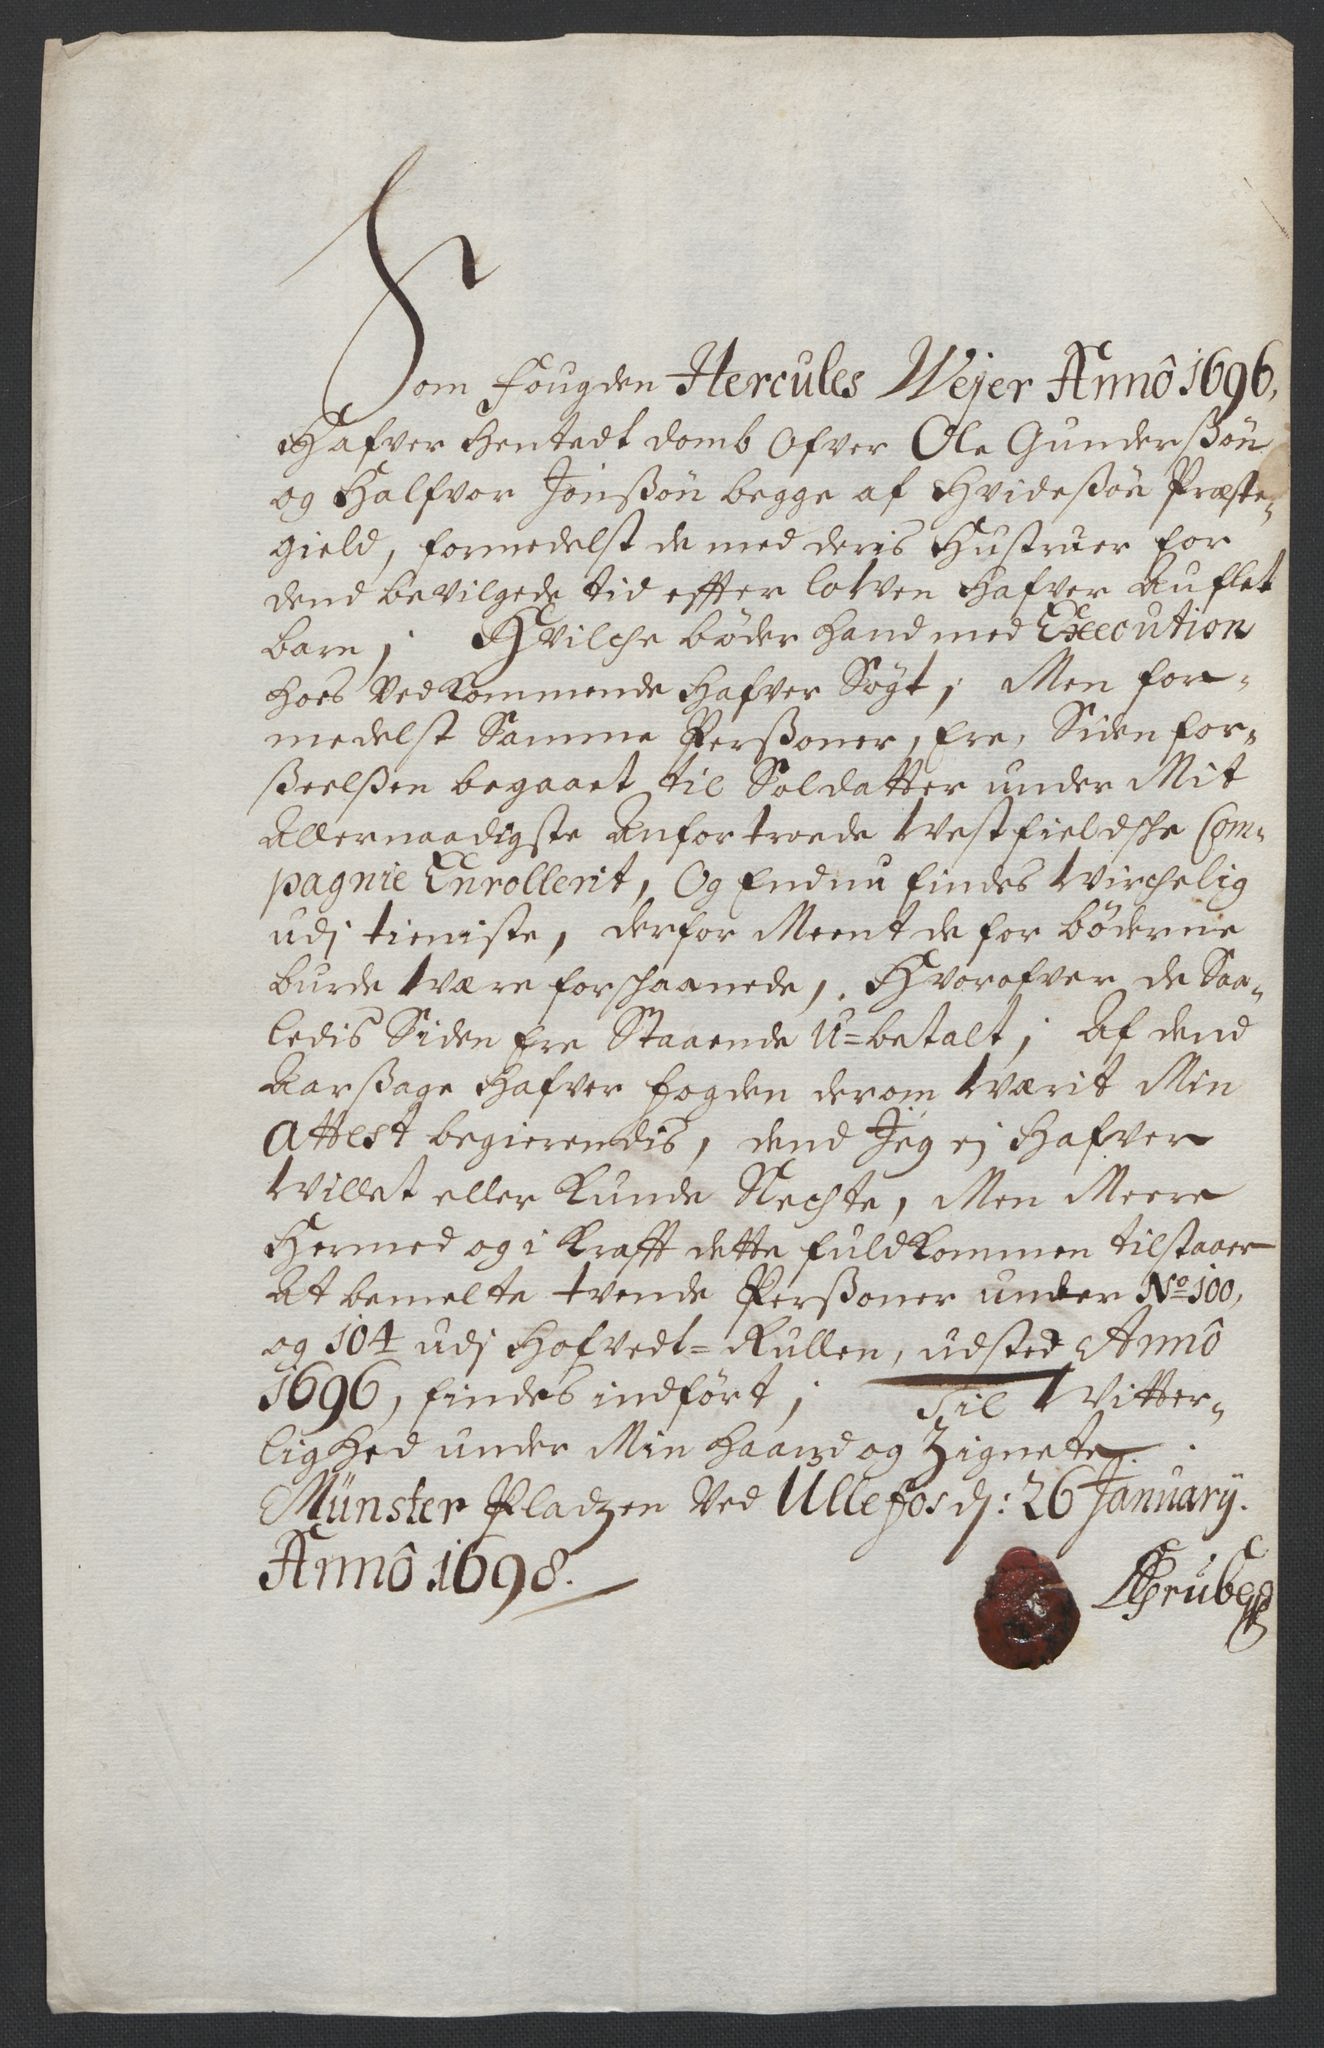 Som Fougden Hercules Wejer Annô 1696,
Hafver hentedt domb ofver Ole Gunderßön
og Halfvor Jönßön begge af Hvideßöe Præste-
gield, formedelst de med deris Hustruer for
dend bevilgede tid effter lowen hafver Auflet
barn; Hvilche böder hand med Execution
hoes Vedkommende hafver Sögt; Men for-
medelst Samme Perßoner, Ere, Siden for-
ßeelßen begaaet til Soldatter under Mit
Allernaadigste Anfortroede Westfieldsche Com-
pagnie Enrollerit, Og Endnu findes Wirchelig
udj tieniste, derfor Meent de for böderne
burde Være forschaanede, Hvorofver de Saa-
ledis Siden Ere Staaende U=betalt; Af dend
Aarßage hafver fogden derom Wærit Min
Attest begierendis, dend Jeg ej hafver
Willet eller Kunde Nechte, Men Meere
Hermed og i Krafft dette fuldkommen tilstaaer
At bemelte tvende Perßoner under No 100,
og 104 udj Hofvedt=Rullen, udsted Annô
1696, findes indfört; Til Vitter-
lighed under Min haand og Zignete.
Münster Pladzen Ved Ullefos dj: 26 Januarij.
Annô 1698.